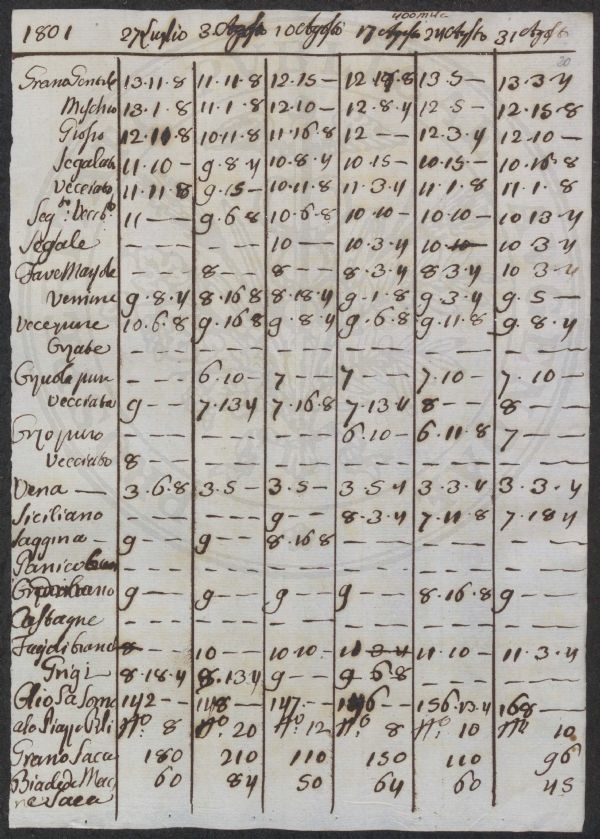 400 mila
1801 27 Luglio 3 Agosto 10 Agosto 17 Agosto 24 Agosto 31 Agosto
20
Grano Gentile 13·11·8 11·11·8 12·15— 12·17·8 13·5— 13·3·4
Mischio 13·1·8 11·1·8 12·10— 12·8·4 12·5— 12·15·8
Grosso 12·11·8 10·11·8 11·16·8 12—— 12·3·4 12·10—
Segalato 11·10— 9·8·4 10·8·4 10·15— 10·15— 10·16·8
Vecciato 11·11·8 9·15— 10·11·8 11·3·4 11·1·8 11·1·8
11—— 9·6·8 10·6·8 10·10— 10·10— 10 13·4
Segale ——— ——— 10—— 10·3·4 10 10— 10 3·4
Fave ——— 8—— 8—— 8·3·4 8·3·4 10 3·4
9·8·4 8·16 8 8·18·4 9·1·8 9·3·4 9·5—
10·6·8 9·16 8 9·8·4 9·6·8 9·11·8 9·8·4
——— ——— ——— ——— ——— ———
——— 6·10— 7—— 7—— 7·10— 7·10—
Vecciata 9—— 7·13 4 7·16·8 7·13 4 8—— 8——
Orzo puro ——— ——— ——— 6·10— 6·11·8 7——
Vecciato 8—— ——— ——— ——— ——— ———
Vena 3·6·8 3·5— 3·5— 3·5 4 3·3·4 3·3·4
Siciliano ——— ——— 9—— 8·3·4 7·11·8 7·18 4
Saggina 9—— 9—— 8·16 8 ——— ——— ———
Panico ——— ——— ——— ——— ——— ———
9—— 9—— 9—— 9—— 8·16·8 9——
Castagne ——— ——— ——— ——— ——— ———
8—— 10—— 10·10— 11 3·4 11·10— 11·3·4
Grigi 8·18·4 8·13 4 9—— 9·6·8 ——— ———
Olio La Soma 142—— 148—— 147—— 146—— 156·13·4 168——
No 8 No 20 No 12 No 8 No 10 No 10
Grano Saca 180 210 110 150 110 96
Biade de 60 84 50 64 60 45
ne Saca